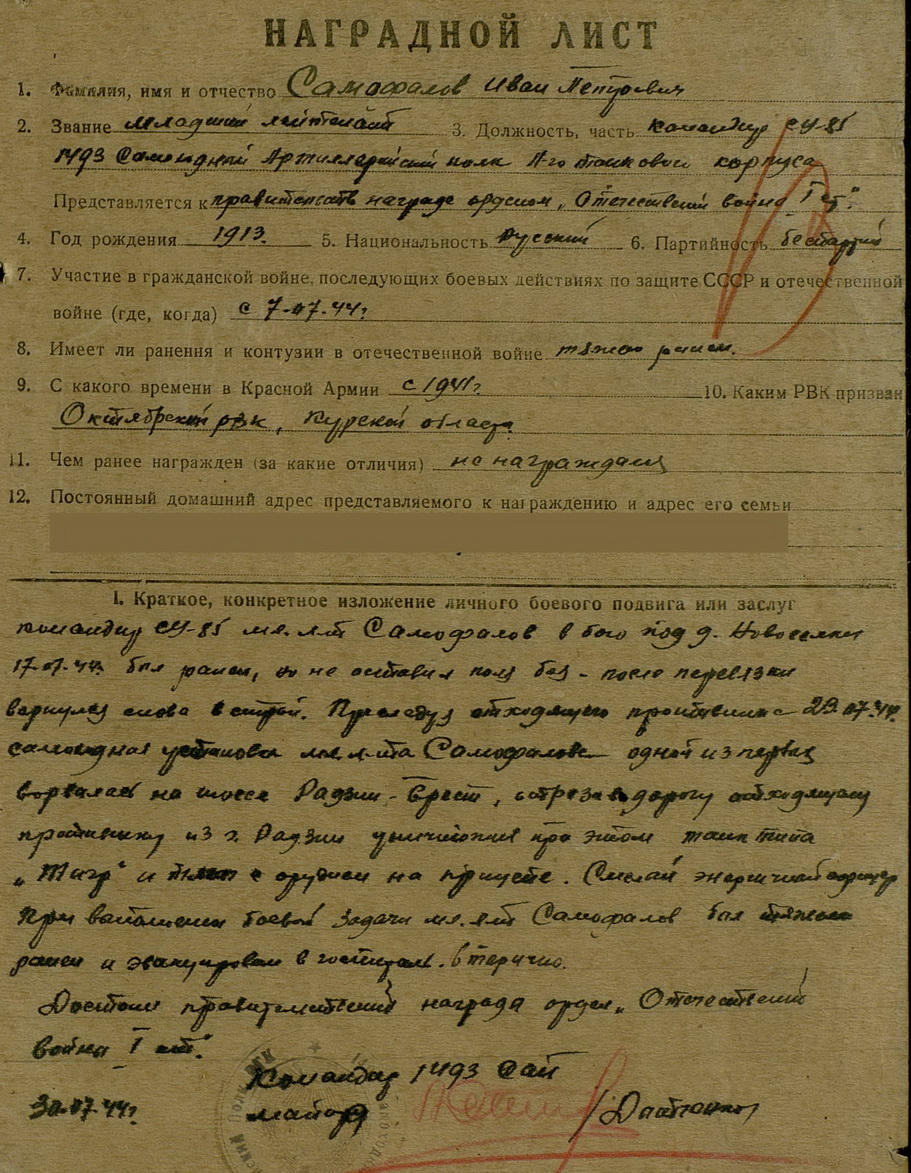 НАГРАДНОЙ ЛИСТ
1. Фамилия, имя и отчество Самофалов Иван Петрович
2. Звание младший лейтенант 3. Должность, часть командир СУ-85
1493 Самоходной Артиллерийский полк 11го танкового корпуса
Представляется к правительств награде орденом „Отечественной война I ст."
4. Год рождения 1913. 5. Национальность русский 6. Партийность беспартий
7. Участие в гражданской войне, последующих боевых действиях по защите СССР и отечественной
войне (где, когда) с 7-07-44г
8. Имеет ли ранения и контузии в отечественной войне тяжело ранен.
9. С какого времени в Красной Армии с 1941г 10. Каким РВК призван
Октябрьский рвк, Курской области
11. Чем ранее награжден (за какие отличия) не награждался
12. Постоянный домашний адрес представляемого к награждению и адрес его семьи
I. Краткое, конкретное изложение личного боевого подвига или заслуг
Командир СУ-85 мл. л-т Самофалов в бою под д. Новоселки
17-07-44г. был ранен, но не оставил поля боя - после перевязки
вернулся снова в строй. Преследуя отходящего противника 29.07.44г.
самоходная установка мл. л-та Самофалова одной из первых
ворвалась на шоссе Радзин-Брест, отрезав дорогу отходящему
противнику из г. Радзин уничтожив при этом танк типа
„Тигр" и орудием на прицепе. Смелый энергичный офицер
При выполнении боевой задачи мл. л-т Самофалов был тяжело
ранен и эвакуирован в госпиталь. вторично.
Достоин правительственной награда орден „Отечественной
война I ст."
Командир 1493 сап
30.07.44г. майор /Дайтонко/